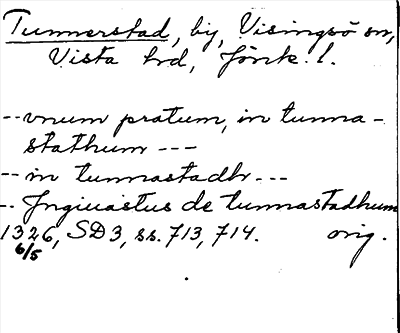 Tunnerstad, by, Visingsö sn,
Vista hrd, Jönk. l.
-- vnum pratum, in tunna-
stathum ---
-- in tunnastadhr ---
-- Jngiuastus de tunnastadhum
1326, SD3, ss. 713, 714. orig.
6/5